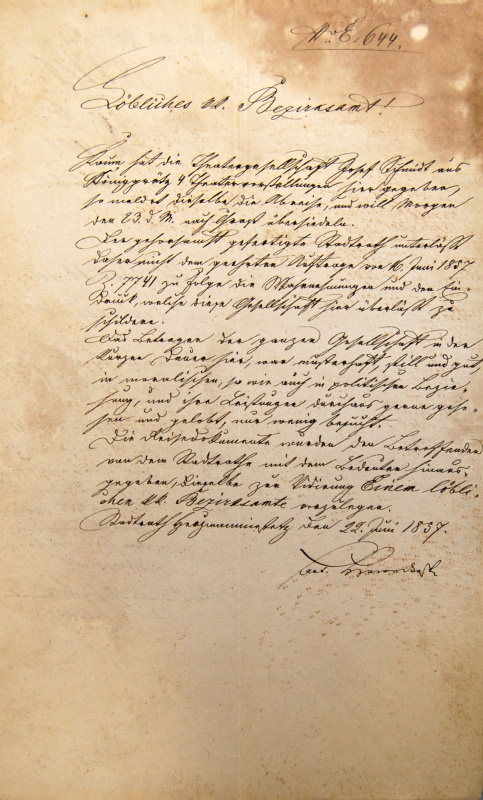 N. E. 644.
Löbliches kk. Bezirksamt!
Kaum hat die Theatergesellschaft Josef Schmidt aus
Königgrätz 4 Theatervorstellungen hier gegeben,
so meldet dieselbe die Abreise, und will Morgen
den 23. d. M. nach Chrast übersiedeln.
Der gehorsamst gefertigte Stadtrath unterläßt
daher nicht dem geehrten Auftrage vom 16. Juni 1857
Z. 7741 zu Folge die Wahrnehmungen und den Ein-
druck, welche diese Gesellschaft hier überläßt zu
schildern.
Das Betragen der ganzen Gesellschaft in der
kurzen Dauer hier, war musterhaft still und gut,
in moralischer, so wie auch in politischer Bezie-
hung, und ihre Leistungen durchaus gerne gese-
hen und gelobt, nur wenig besucht.
Die Reisedokumente wurden den Betreffenden
von dem Stadtrathe mit dem Bedeuten hinaus-
gegeben, dieselbe zur Vidirung Einem löbli-
chen kk. Bezirksamte vorzulegen.
Stadtrath Heřmanměstetz den 22. Juni 1857.